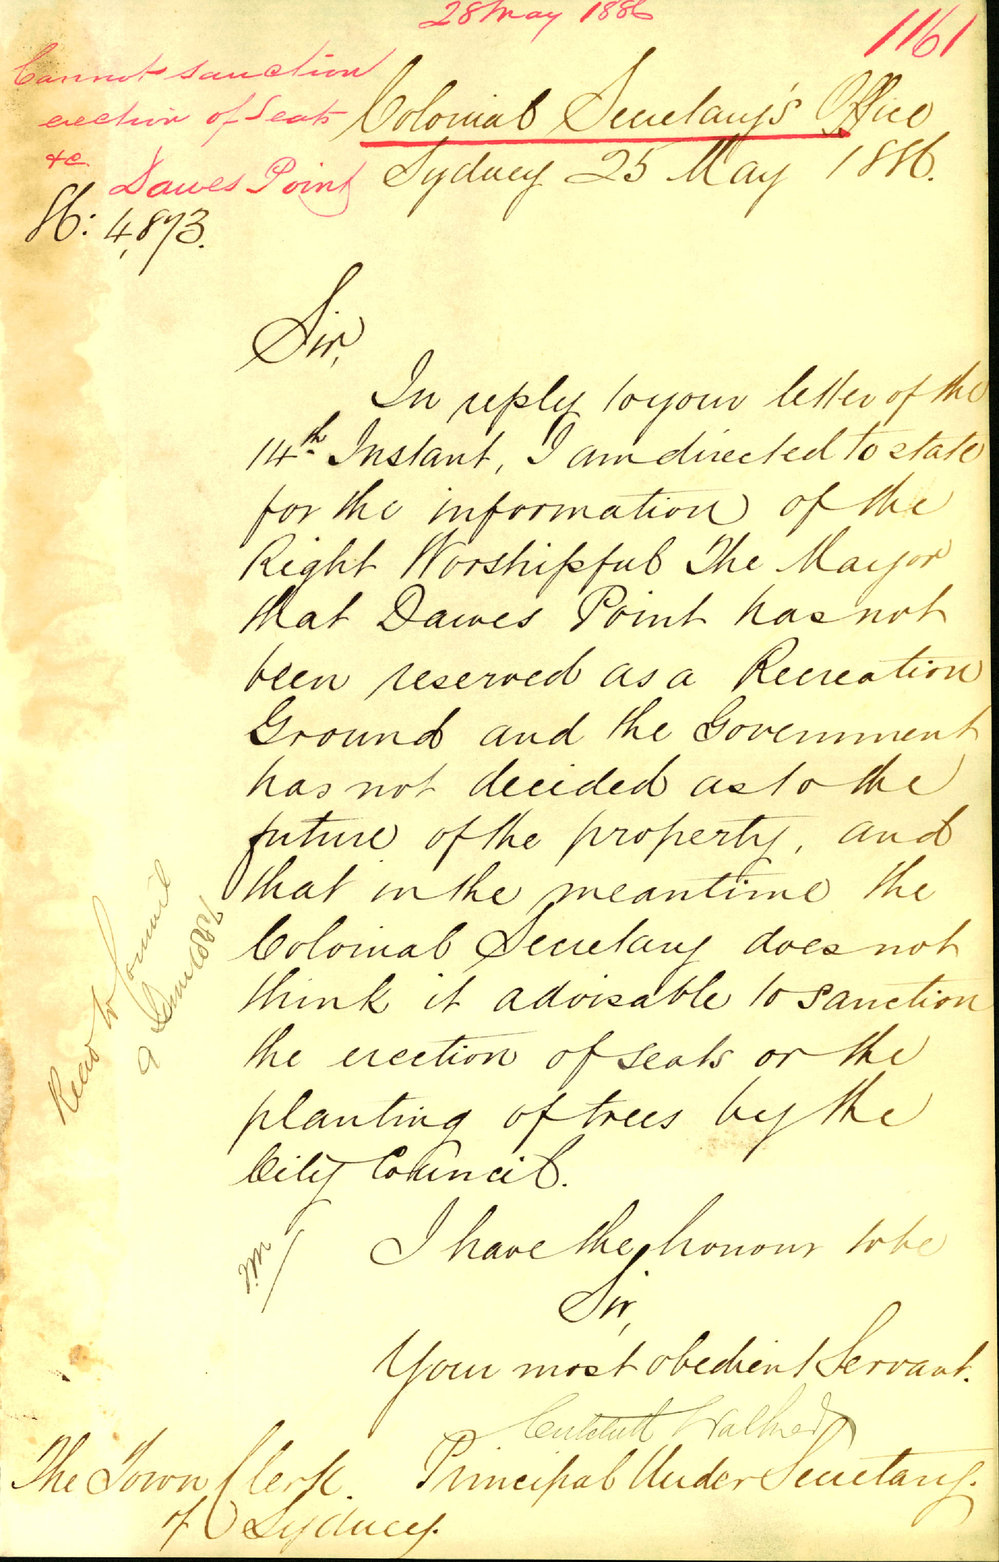 28 May 1886
1161
Cannot sanction
erection of Seats
&c.
Dawes Point
86: 4,873.
Colonial Secretary's Office
Sydney 25 May 1886.
Sir,
In reply to your letter of the
14th Instant, I am directed to state
for the information of the
Right Worshipful The Mayor
that Dawes Point has not
been reserved as a Recreation
Ground and the Government
has not decided as to the
future of the property, and
that in the meantime the
Colonial Secretary does not
think it advisable to sanction
the erection of seats or the
planting of trees by the
City Council.
Read to Council
9 June 1886
I have the honour to be
Sir,
Your most obedient Servant.
Critchett Walker
Principal Under Secretary.
The Town Clerk
of Sydney.